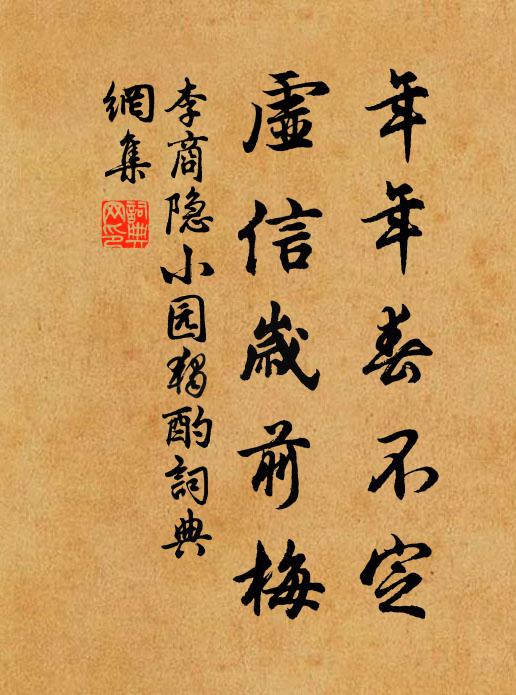 年年春不定
虛信歲前梅
李商隐小园獨酌詞典
網集
詞典
网印